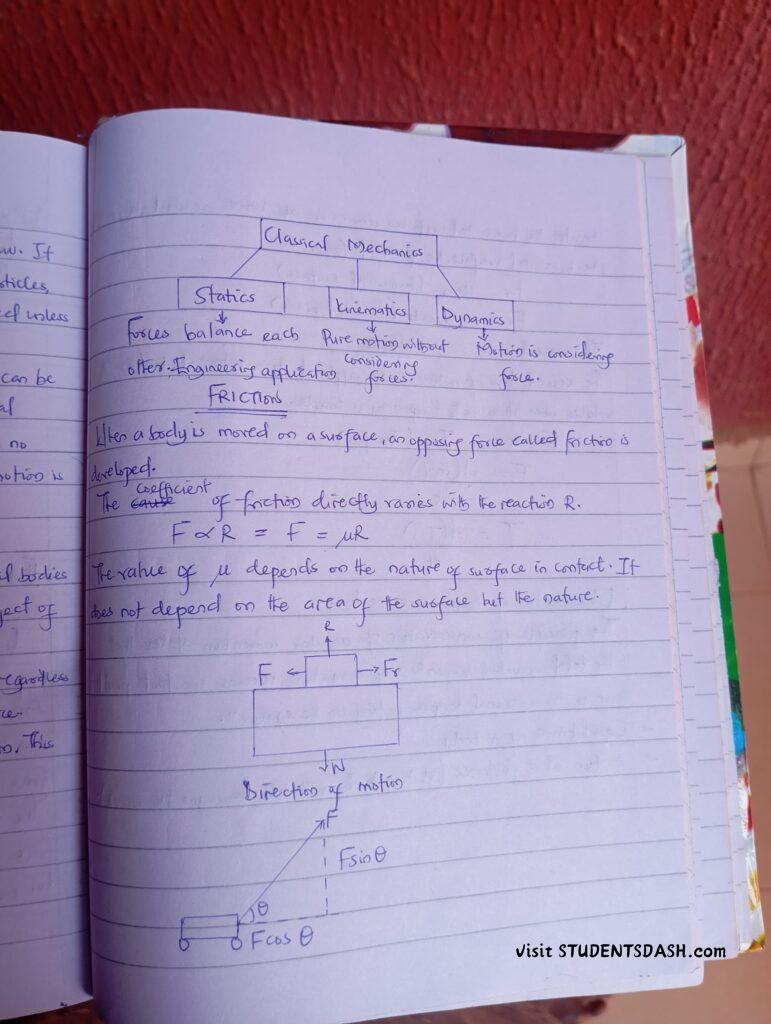 w. If
sticles,
unless
can be
al
no
motion is
bodies
ject of
egardless
ce.
n. This
Classical Mechanics
Statics Kinematics Dynamics
Forces balance each other. Engineering application
Pure motion without considering forces.
Motion is considering force.
FRICTION
When a body is moved on a surface, an opposing force called frictio is
developed.
The cause coefficient of friction directly varies with the reaction R.
F ∝ R = F = μR
The value of μ depends on the nature of surface in contact. It
does not depend on the area of the surface but the nature.
R
F Fr
W
Direction of motion
F
Fsinθ
θ
Fcos θ
visit STUDENTSDASH.com